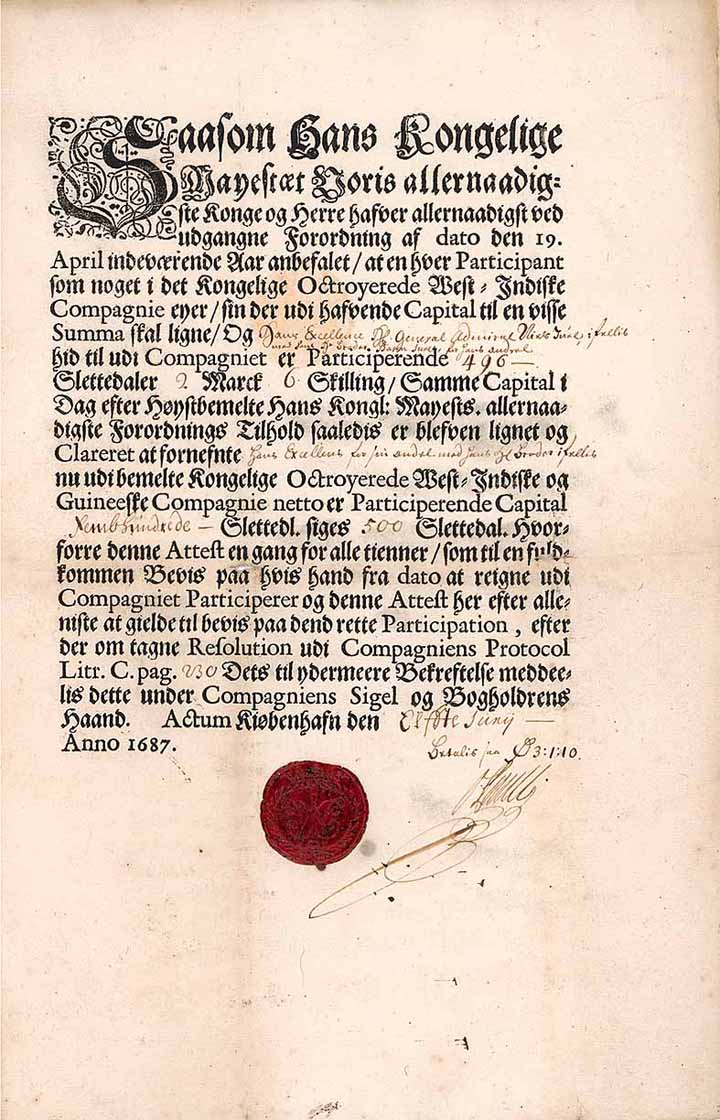 Saasom Hans Kongelige
Mayestæt Voris allernaadig=
ste Konge og Herre hafver allernaadigst ved
udgangne Forordning af dato den 19.
April indeværende Aar anbefalet / at en hver Participant
som noget i det Kongelige Octroyerede West = Indiske
Compagnie eyer / sin der udi hafvende Capital til en visse
Summa skal ligne / Og Hans Excellence Hr General Admiral Niels Juel ifellis
med sin Hr Broder Baron Juel for hans andeel
hid til udi Compagniet er Participerende 496 —
Slettedaler 2 Marck 6 Skilling / Samme Capital i
Dag efter Høystbemelte Hans Kongl: Mayests. allernaa=
digste Forordnings Tilhold saaledis er blefven lignet og
Clareret at fornefnte Hans Excellens for sin andel med hans Hr Broder ifellis
nu udi bemelte Kongelige Octroyerede West = Indiske og
Guineeske Compagnie netto er Participerende Capital
Fembhundrede — Slettedl. siges 500 Slettedal. Hvor=
forre denne Attest en gang for alle tienner / som til en fuld=
kommen Bevis paa hvis hand fra dato at reigne udi
Compagniet Participerer og denne Attest her efter alle=
niste at gielde til bevis paa dend rette Participation , efter
der om tagne Resolution udi Compagniens Protocol
Litr. C. pag. 230 Dets til ydermeere Bekreftelse meddee=
lis dette under Compagniens Sigel og Bogholdrens
Haand. Actum Kiøbenhafn den Elfte Junij —
Anno 1687.
3:1:10.